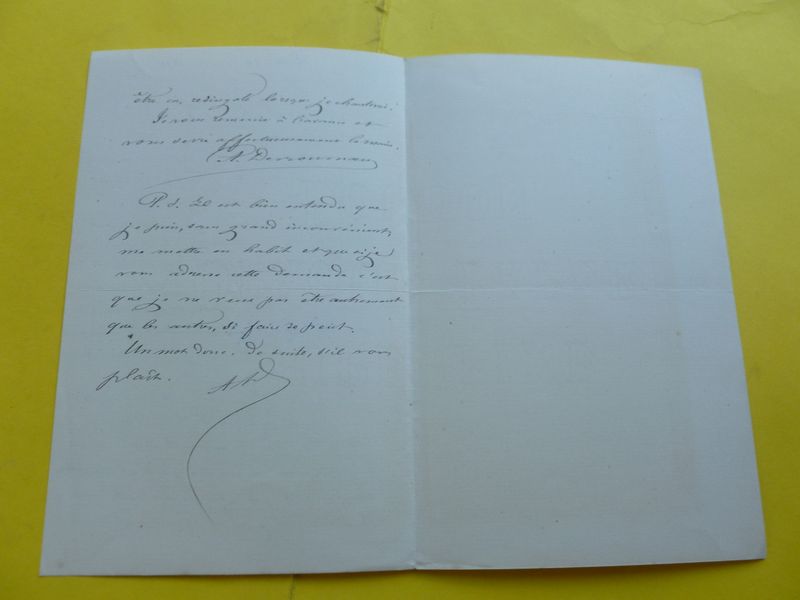 être en redingote lorsque je chanterai.
Je vous remercie à l'avance et
vous serre affectueusement la main.
A. Desrousseaux
P. S. Il est bien entendu que
je puis, sans grand inconvénient,
me mettre en habit et que si je
vous adresse cette demande c'est
que je ne veux pas être autrement
que les autres, si faire se peut.
Un mot donc. De suite, s'il vous
plaît.
A D